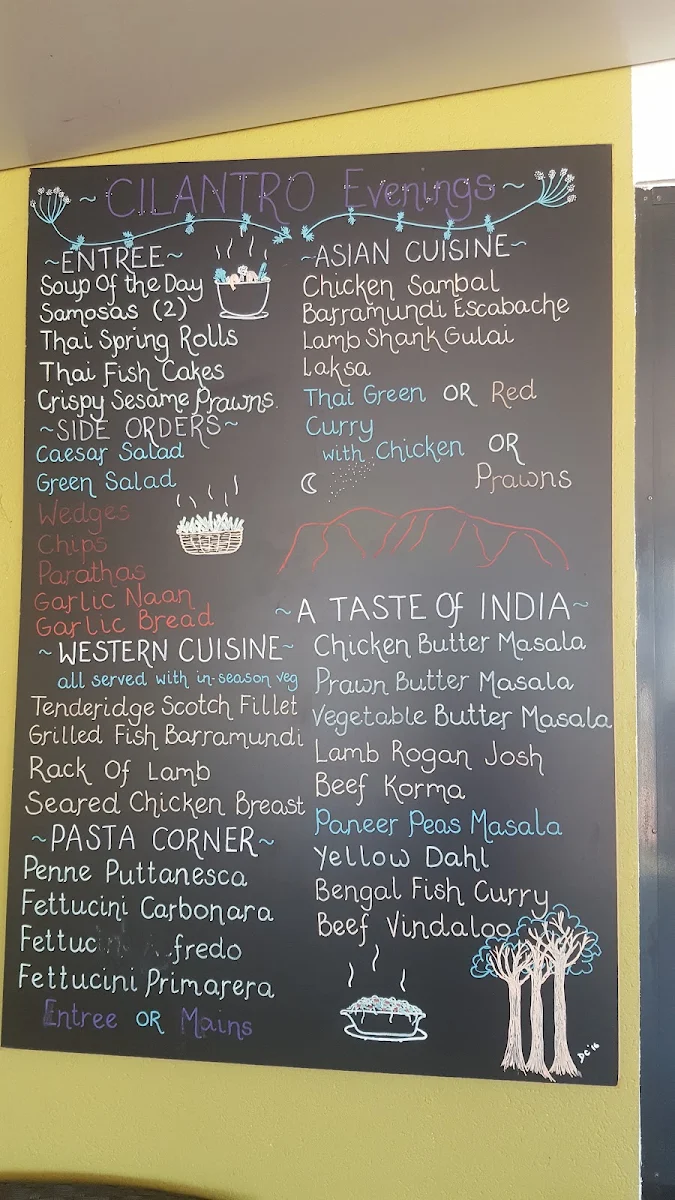 ~ CILANTRO Evenings ~
~ENTREE~
Soup Of the Day
Samosas (2)
Thai Spring Rolls
Thai Fish Cakes
Crispy Sesame Prawns.
~SIDE ORDERS~
Caesar Salad
Green Salad
Wedges
Chips
Parathas
Garlic Naan
Garlic Bread
~WESTERN CUISINE~
all served with in-season veg
Tenderidge Scotch Fillet
Grilled Fish Barramundi
Rack Of Lamb
Seared Chicken Breast
~PASTA CORNER~
Penne Puttanesca
Fettucini Carbonara
Fettuc fredo
Fettucini Primarera
Entree OR Mains
~ASIAN CUISINE~
Chicken Sambal
Barramundi Escabache
Lamb Shank Gulai
Laksa
Thai Green OR Red
Curry
with Chicken OR
Prawns
~A TASTE Of INDIA~
Chicken Butter Masala
Prawn Butter Masala
Vegetable Butter Masala
Lamb Rogan Josh
Beef Korma
Paneer Peas Masala
Yellow Dahl
Bengal Fish Curry
Beef Vindaloo
DC'16